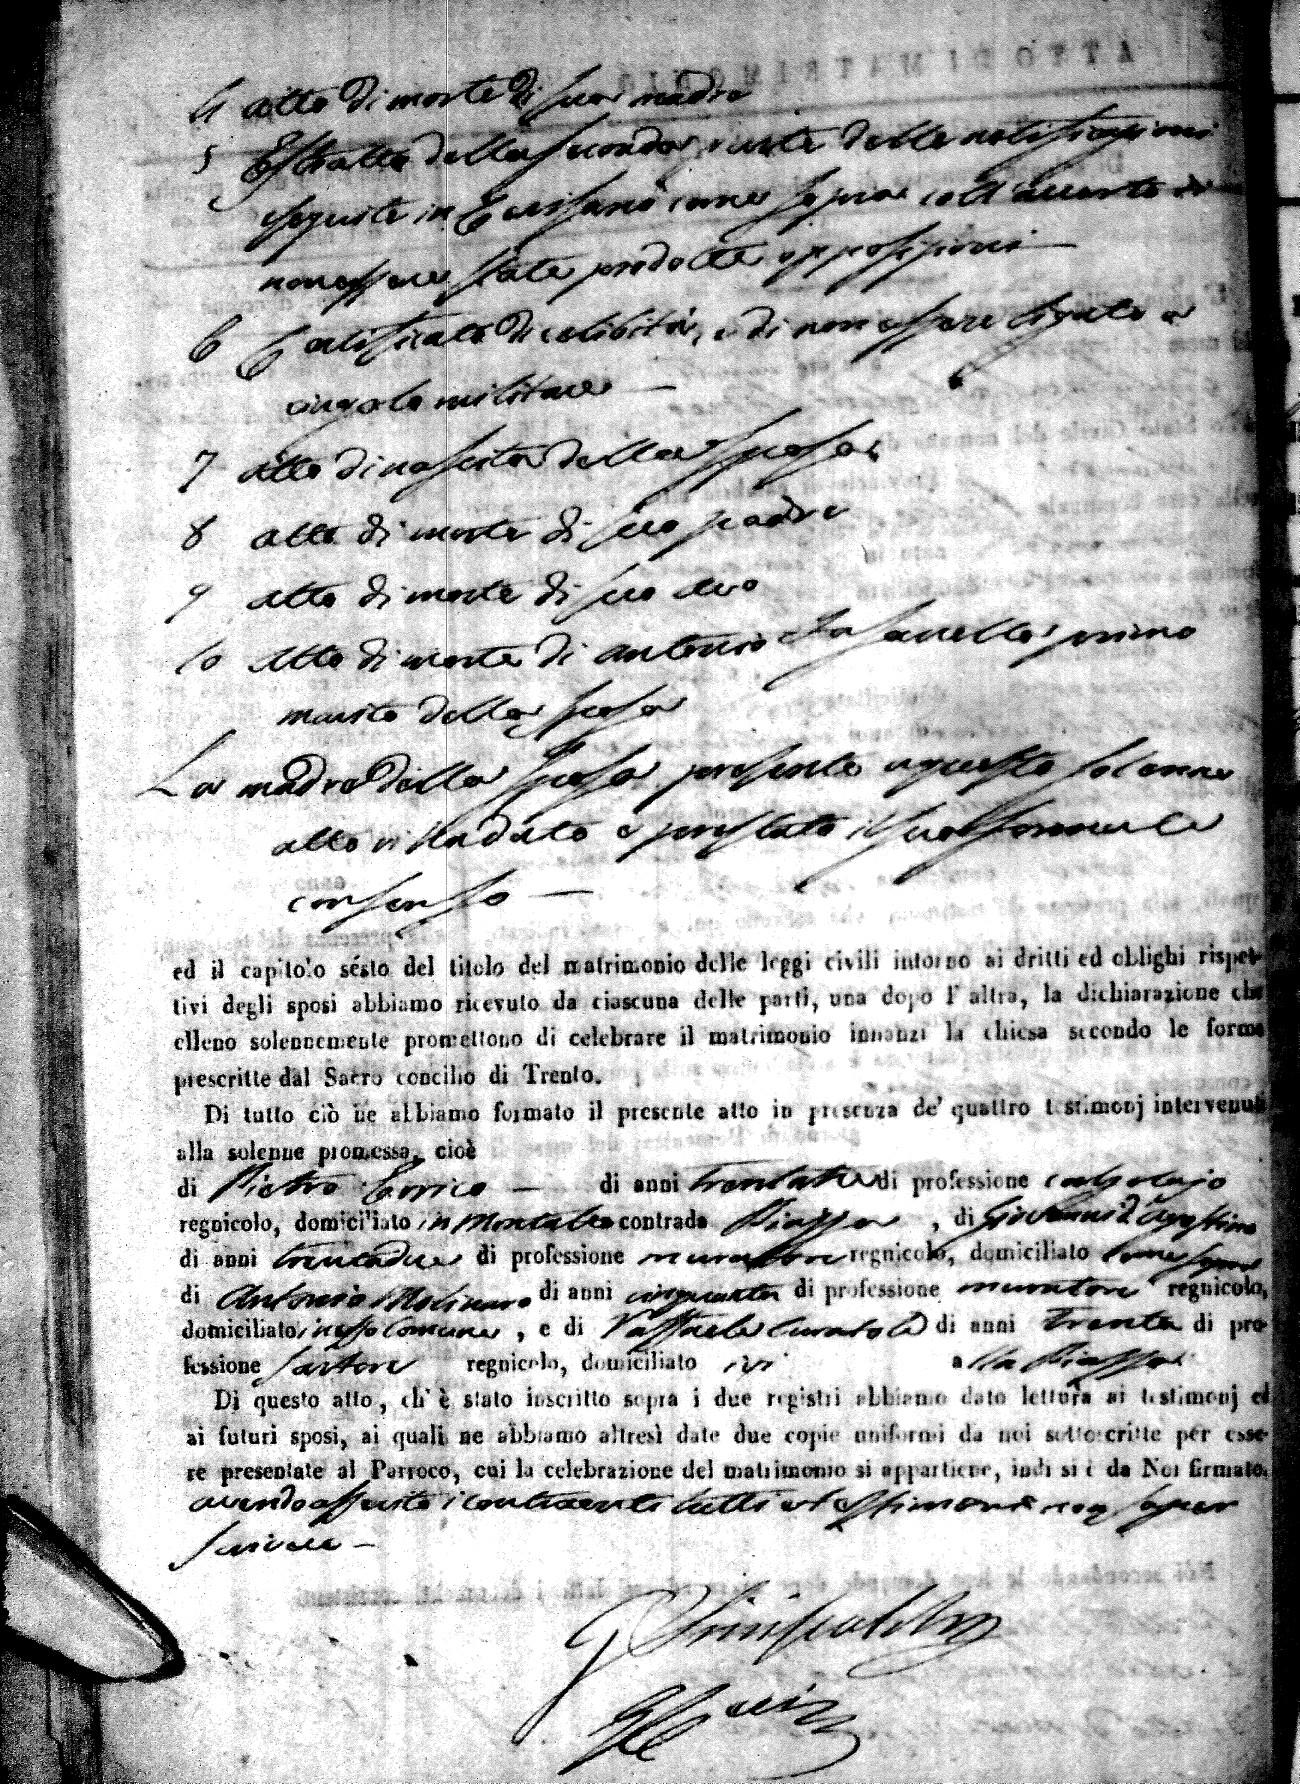 4 Atto di morte di sua madre
5 Estratto della seconda parte delle notificazioni
eseguite in come sopra coll'accerto di
non essere state prodotte opposizioni
6 Certificato di celibità, e di non essere legato a
cingolo militare
7 Atto di nascita della sposa
8 Atto di morte di suo padre
9 Atto di morte di suo avo
10 Atto di morte di Antonio primo
marito della sposa
La madre della sposa presente a questo solenne
atto vi ha dato e prestato il suo formale
consenso
ed il capitolo sesto del titolo del matrimonio delle leggi civili intorno ai dritti ed oblighi rispet-
tivi degli sposi abbiamo ricevuto da ciascuna delle parti, una dopo l'altra, la dichiarazione che
elleno solennemente promettono di celebrare il matrimonio innanzi la chiesa secondo le forme
prescritte dal Sacro concilio di Trento.
Di tutto ciò ne abbiamo formato il presente atto in presenza de' quattro testimonj intervenuti
alla solenne promessa, cioè
di Pietro Errico di anni trentatre di professione calzolajo
regnicolo, domiciliato in Montalto contrada Piazza, di Giovanni d'Agostino
di anni trentadue di professione muratore regnicolo, domiciliato come sopra
di Antonio Molinaro di anni cinquanta di professione muratore regnicolo,
domiciliato in esso Comune, e di Raffaele Curatolo di anni trenta di pro-
fessione sartore regnicolo, domiciliato ivi alla Piazza
Di questo atto, ch'è stato inscritto sopra i due registri abbiamo dato lettura ai testimonj ed
ai futuri sposi, ai quali ne abbiamo altresì date due copie uniformi da noi sottoscritte per esse-
re presentate al Parroco, cui la celebrazione del matrimonio si appartiene, indi si è da Noi firmato.
avendo asserito i contraenti tutti e testimoni non saper
scrivere